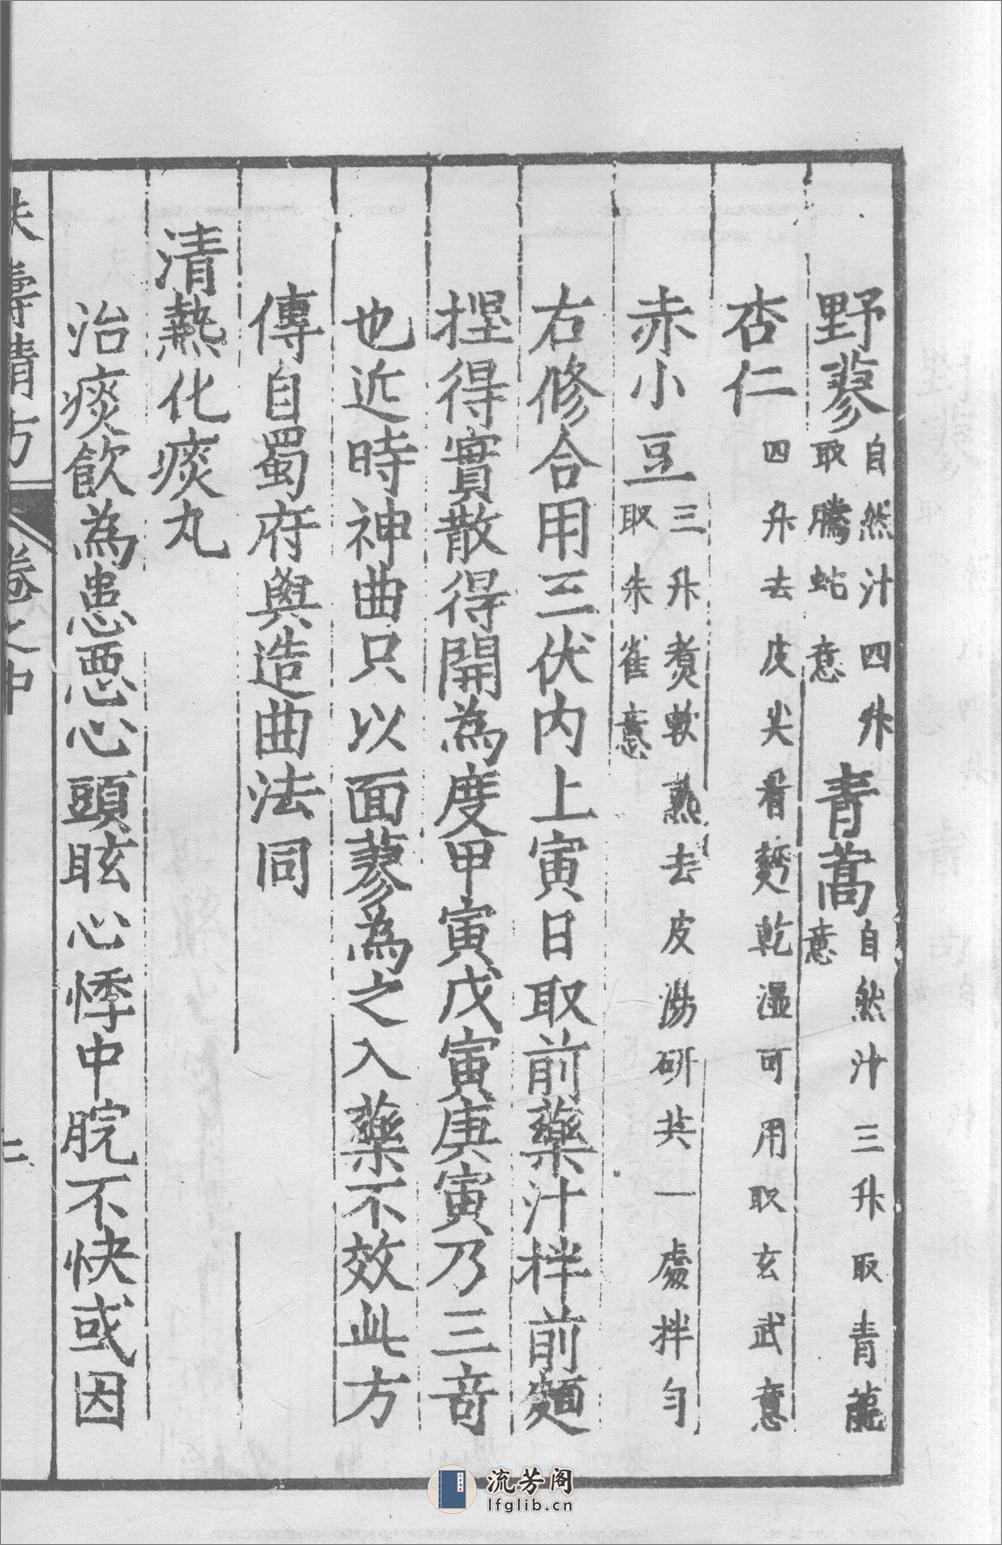 野蓼自然汁四升取騰蛇意 青蒿自然汁三升取青龍意
杏仁四升去皮尖看麪乾濕可用取玄武意
赤小豆三升煮軟熟去皮湯研共一處拌勻取朱雀意
右修合用三伏內上寅日取前藥汁拌前麵
揑得實散得開為度甲寅戊寅庚寅乃三奇
也近時神曲只以面蓼為之入藥不效此方
傳自蜀府與造曲法同
清熱化痰丸
治痰飲為患惡心頭眩心悸中脘不快或因
壽精方 卷之中
流芳阁
lfglib.cn